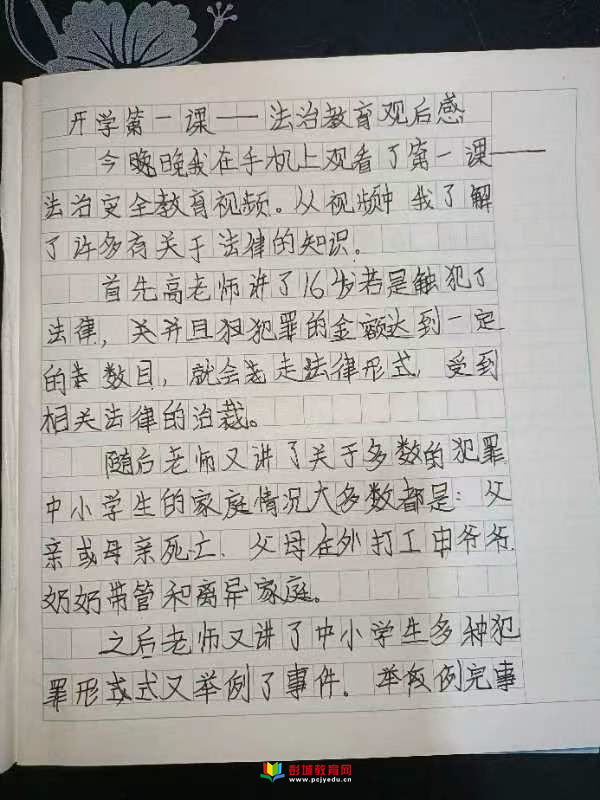 开学第一课——法治教育观后感
今晚晚我在手机上观看了第一课——
法治安全教育视频。从视频中我了解
了许多有关于法律的知识。
首先高老师讲了16岁若是触犯了
法律,并且犯罪的金额达到一定
的数目,就会走法律形式,受到
相关法律的治裁。
随后老师又讲了关于多数的犯罪
中小学生的家庭情况大多数都是:父
亲或母亲死亡、父母在外打工由爷爷
奶奶带管和离异家庭。
之后老师又讲了中小学生多种犯
罪形式又举例了事件。举例完事
彭城教育网
www.pcjyedu.cn